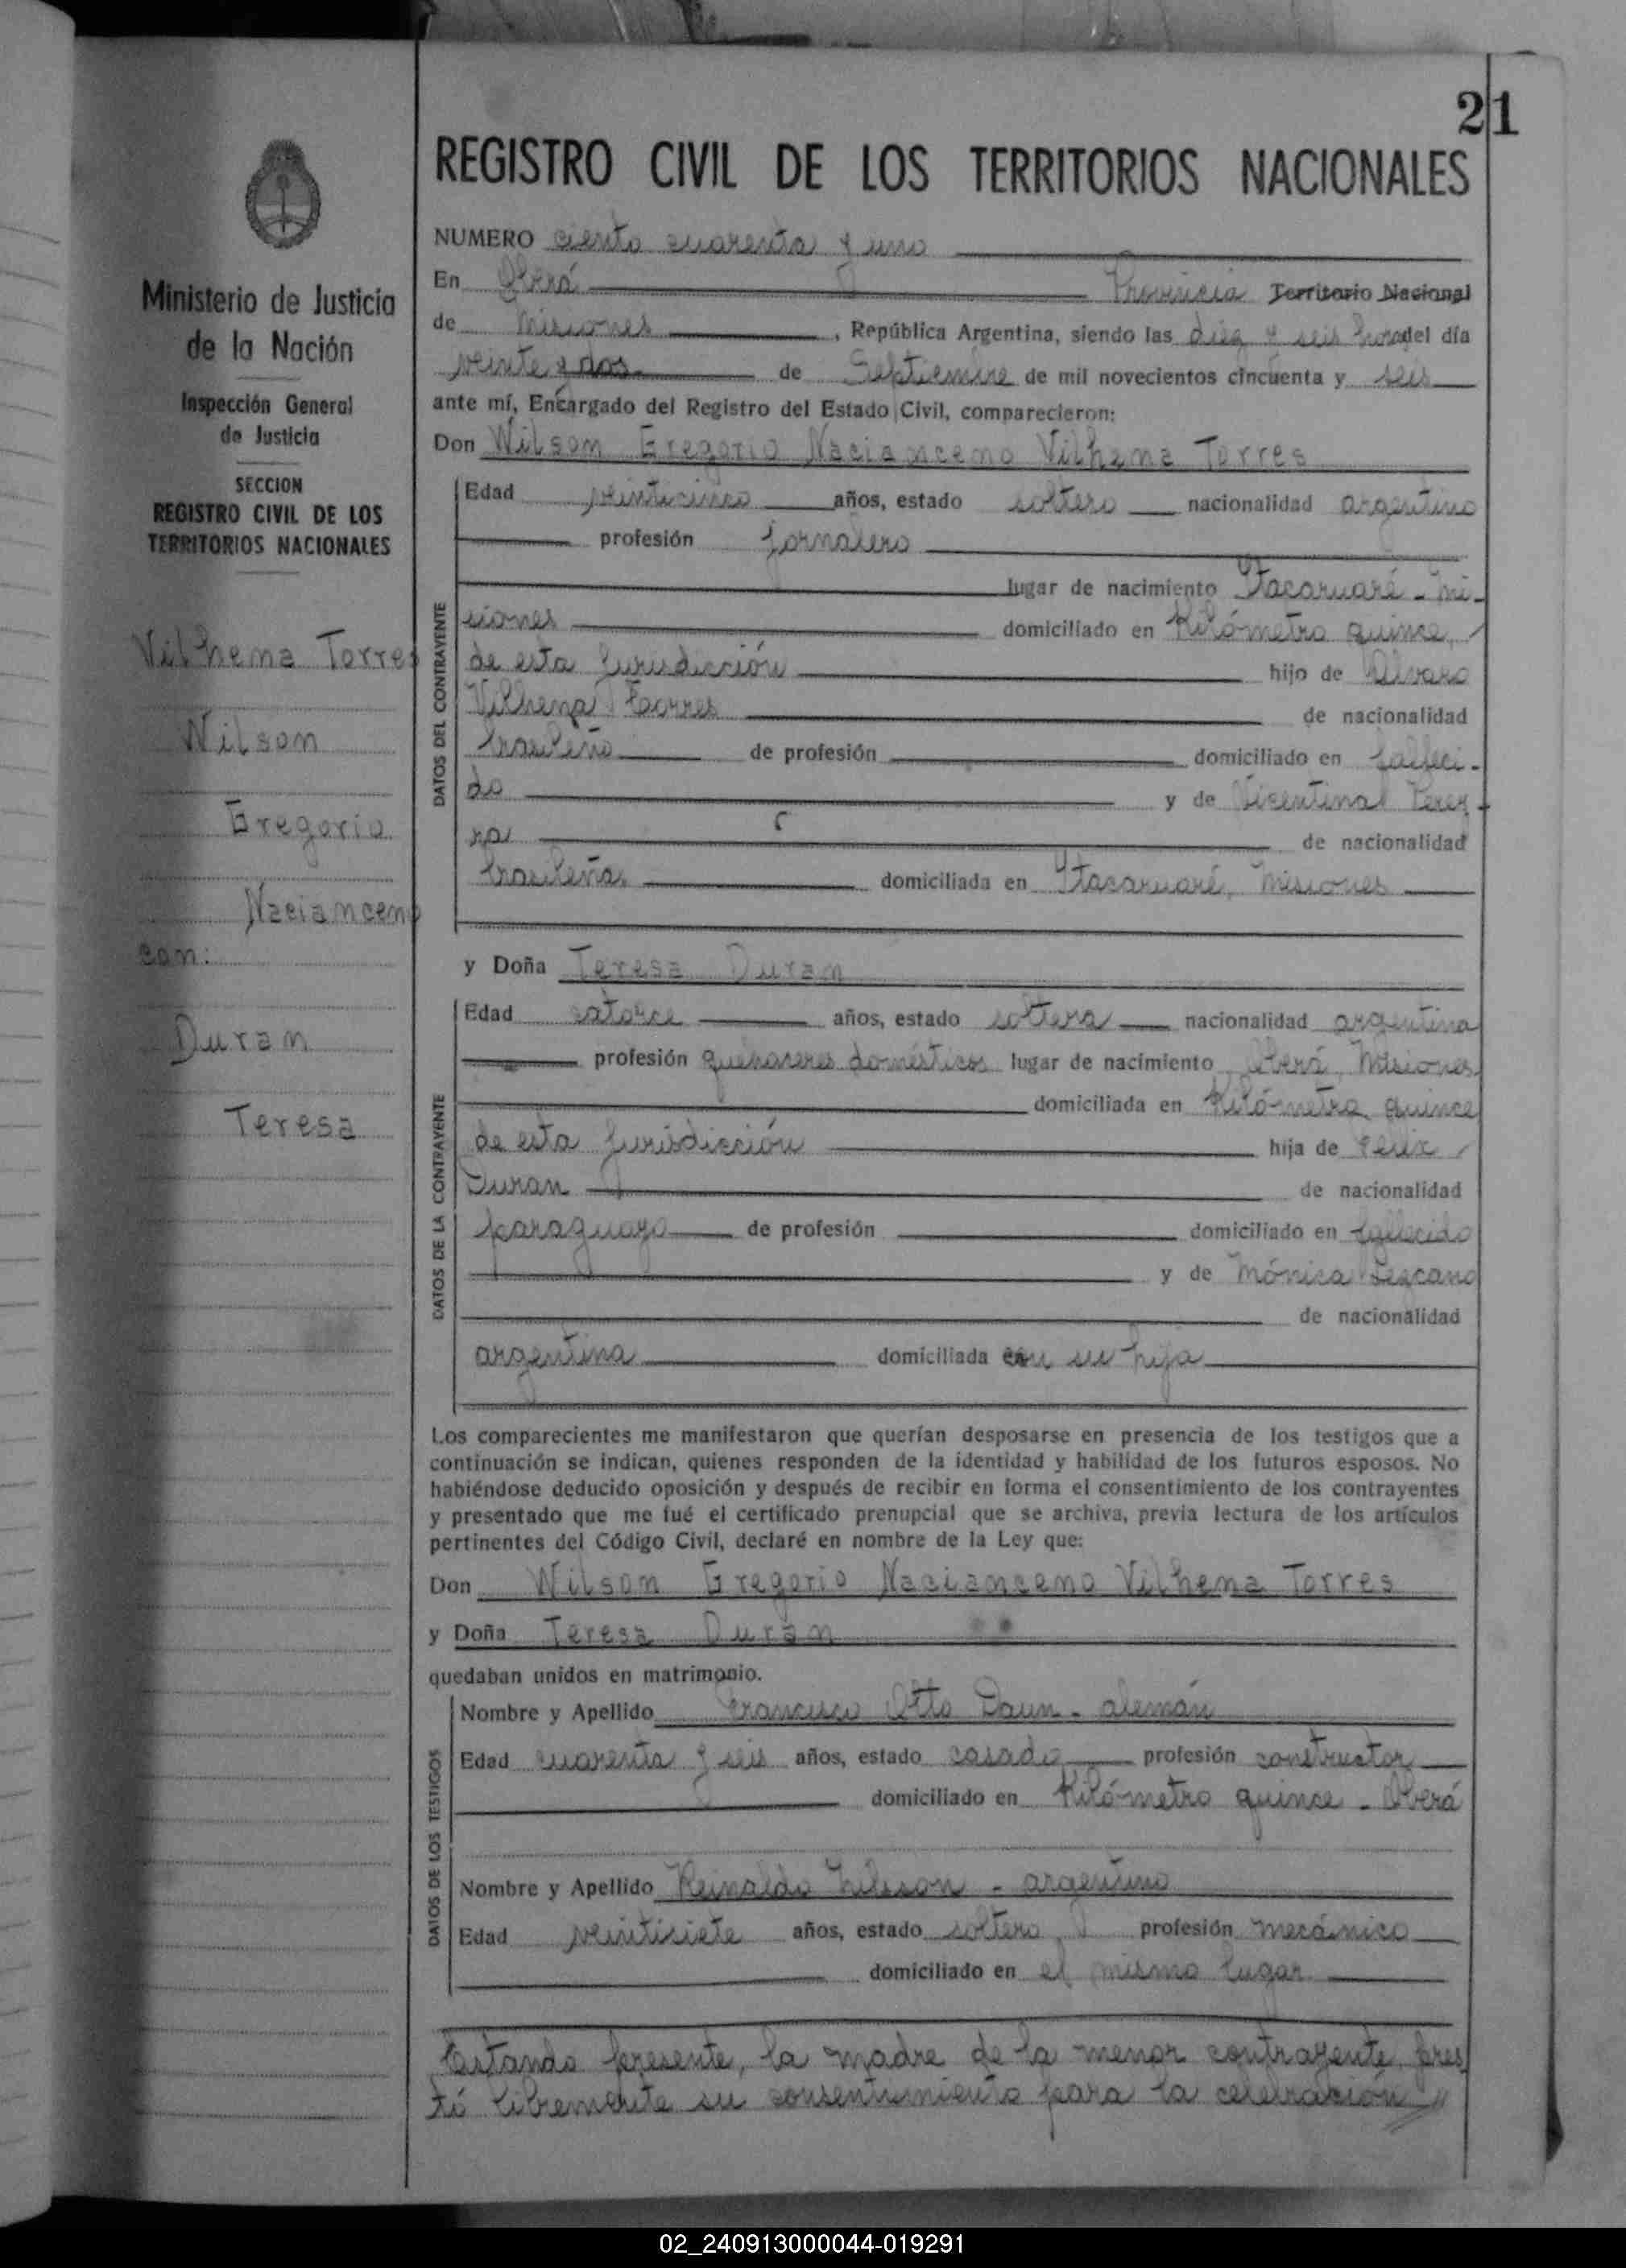 21
REGISTRO CIVIL DE LOS TERRITORIOS NACIONALES
Ministerio de Justicia
de la Nación
Inspección General
de Justicia
SECCION
REGISTRO CIVIL DE LOS
TERRITORIOS NACIONALES
Vilhena Torres
Wilson
Gregorio
Nacianceno
con:
Duran
Teresa
NUMERO ciento cuarenta y uno
En Oberá Provincia Territorio Nacional
de Misiones, República Argentina, siendo las diez y seis horas del día
veinte y dos de Septiembre de mil novecientos cincuenta y seis
ante mí, Encargado del Registro del Estado Civil, comparecieron:
Don Wilson Gregorio Nacianceno Vilhena Torres
DATOS DEL CONTRAYENTE
Edad veinticinco años, estado soltero nacionalidad argentino
profesión jornalero
lugar de nacimiento Itacaruaré - Mi-
siones domiciliado en Kilómetro quince,
de esta Jurisdicción hijo de Alvaro
Vilhena Torres de nacionalidad
brasileño de profesión domiciliado en falleci-
do y de Vicentina Perey-
ra de nacionalidad
brasileña domiciliada en Itacaruaré, Misiones
y Doña Teresa Duran
DATOS DE LA CONTRAYENTE
Edad catorce años, estado soltera nacionalidad argentina
profesión quehaceres domésticos lugar de nacimiento Oberá, Misiones
domiciliada en Kilómetro quince
de esta Jurisdicción hija de Felix
Duran de nacionalidad
paraguayo de profesión domiciliado en fallecido
y de Mónica Lezcano
de nacionalidad
argentina domiciliada con su hija
Los comparecientes me manifestaron que querían desposarse en presencia de los testigos que a
continuación se indican, quienes responden de la identidad y habilidad de los futuros esposos. No
habiéndose deducido oposición y después de recibir en forma el consentimiento de los contrayentes
y presentado que me fué el certificado prenupcial que se archiva, previa lectura de los artículos
pertinentes del Código Civil, declaré en nombre de la Ley que:
Don Wilson Gregorio Nacianceno Vilhena Torres
y Doña Teresa Duran
quedaban unidos en matrimonio.
DATOS DE LOS TESTIGOS
Nombre y Apellido Francisco Otto Daun - alemán
Edad cuarenta y seis años, estado casado profesión constructor
domiciliado en Kilómetro quince - Oberá
Nombre y Apellido Reinaldo - argentino
Edad veintisiete años, estado soltero profesión mecánico
domiciliado en el mismo lugar
Estando presente, la madre de la menor contrayente, pres
tó libremente su consentimiento para la celebración //
02_240913000044-019291